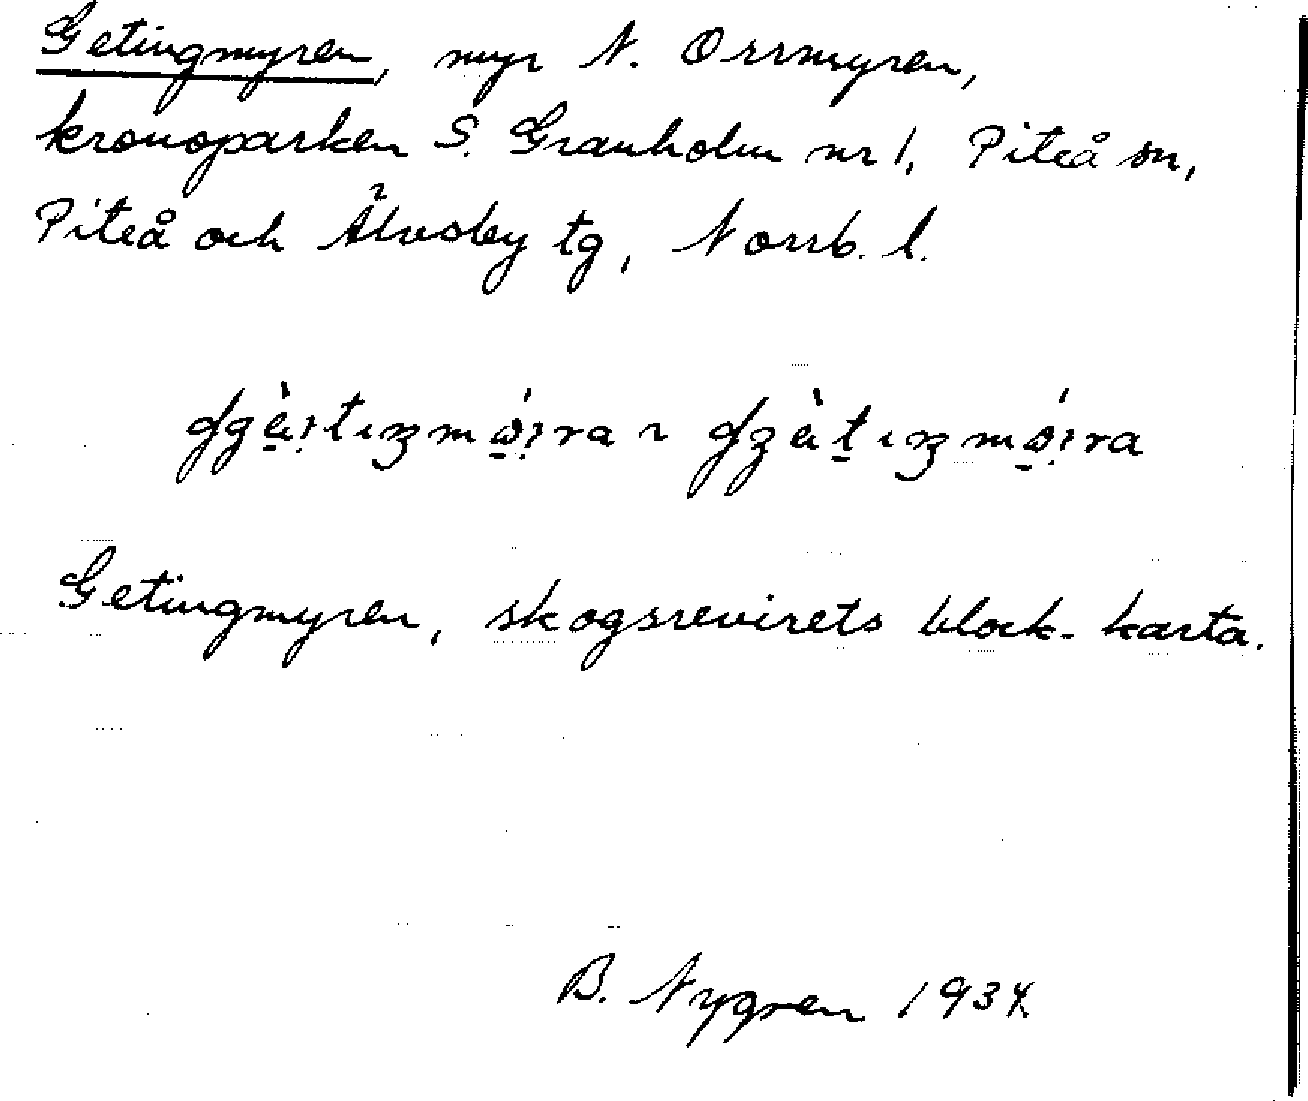 Getingmyren, myr N. Orrmyren,
kronoparken S. Granholm nr 1, Piteå sn,
Piteå och Älvsby tg, Norrb. l.
Getingmyren, skogsrevirets block-karta.
B. Nygren 1934